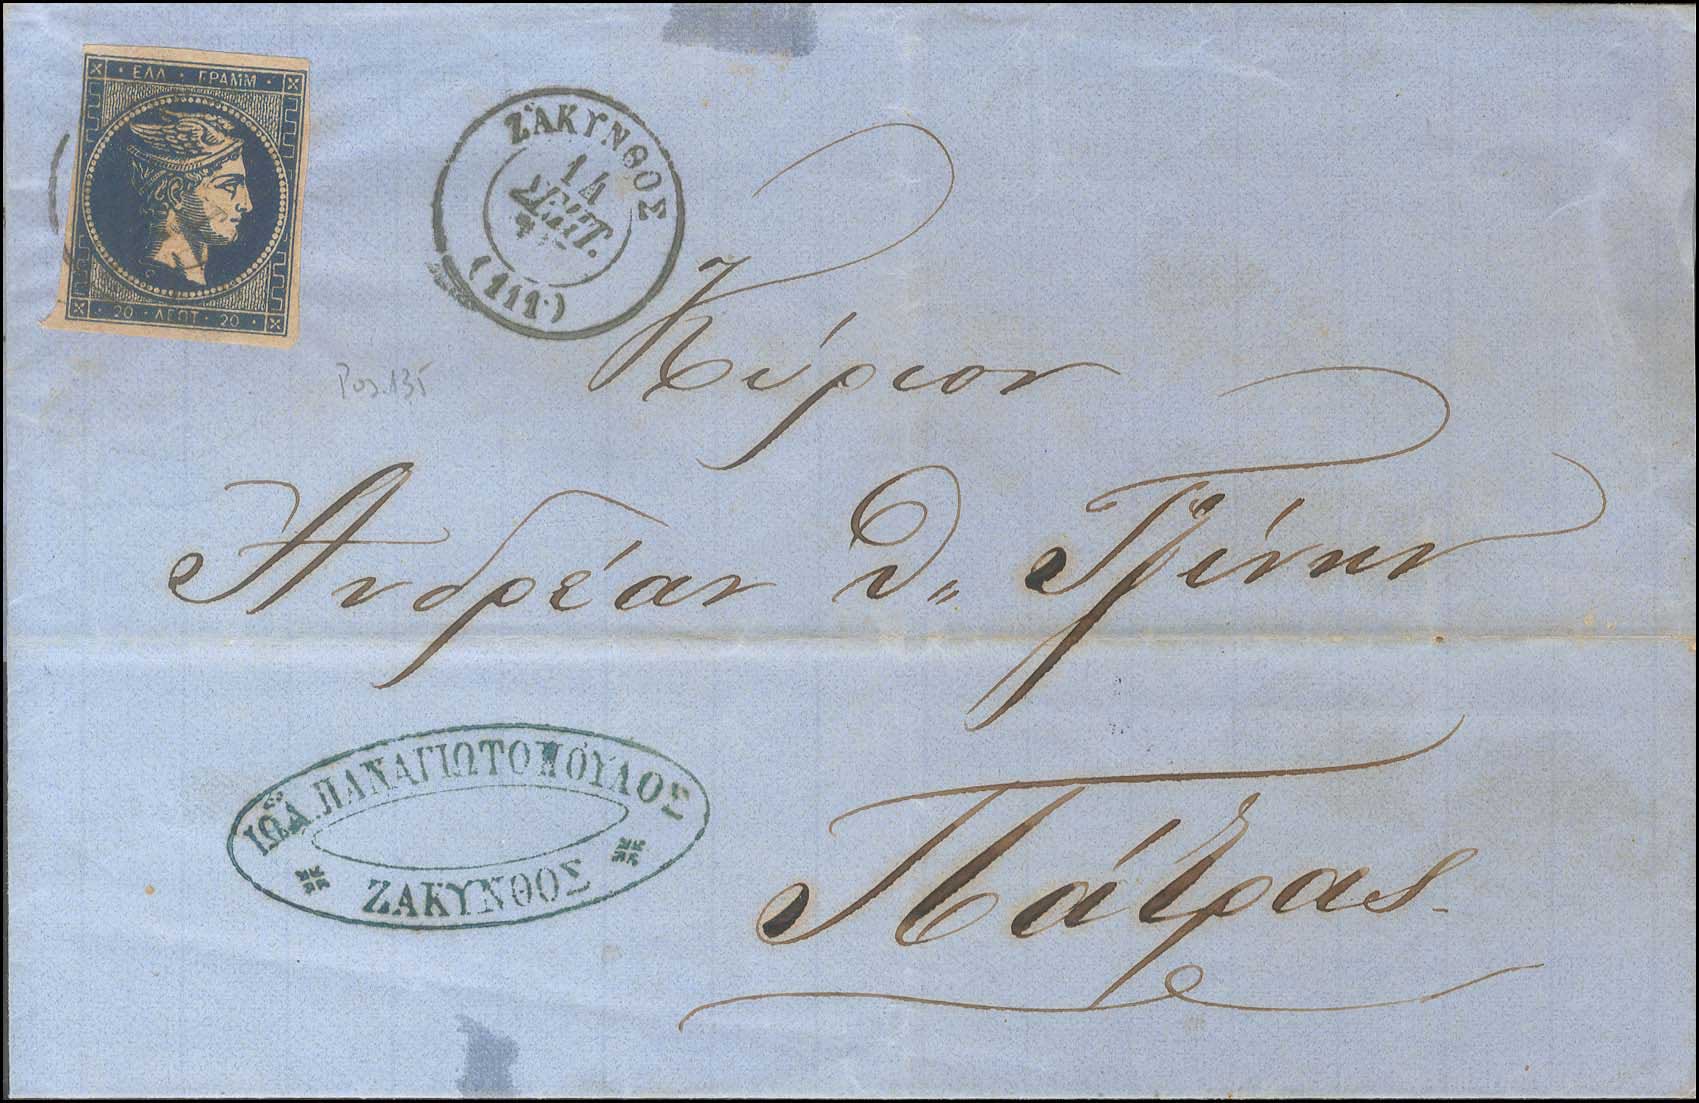 ΕΛΛ · ΓΡΑΜΜ
20 · ΛΕΠΤ · 20
ΖΆΚΥΝΘΟΣ
14
ΣΕΠΤ.
(111·)
Pos. 135
Κύριον
Ἀνδρέαν Θ„ Τζίνην
Πάτρας
ἸΩΆ. ΠΑΝΑΓΙΩΤΟΠΟΎΛΟΣ
ΖΑΚΥΝΘΟΣ